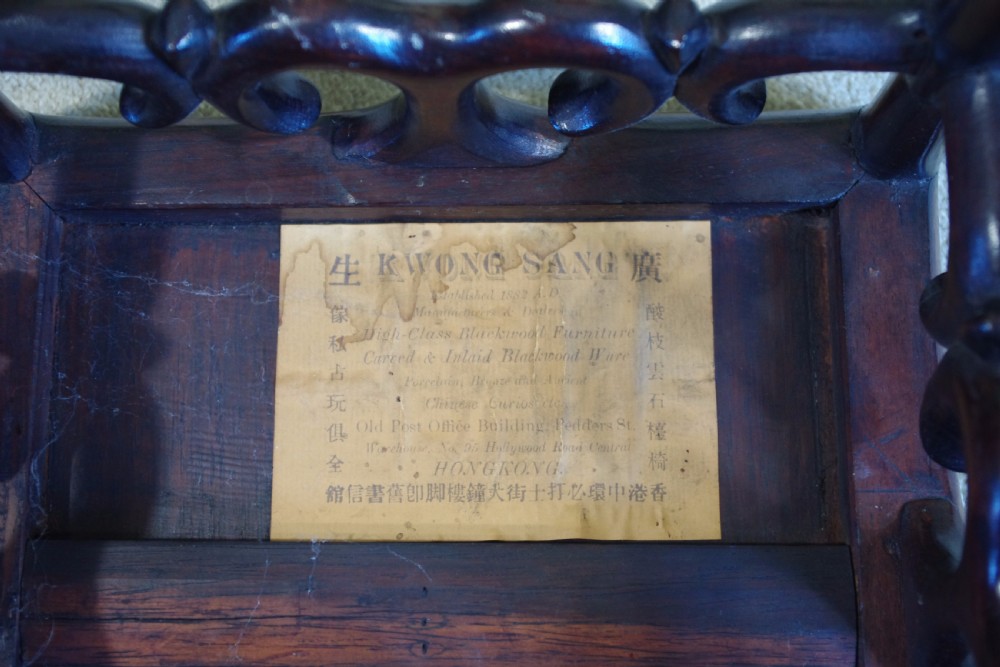 廣 KWONG SANG 生
Established 1882 A.D.
Manufacturers & Dealers
High-Class Blackwood Furniture
Carved & Inlaid Blackwood Ware
Porcelain, Bronze and Ancient
Chinese Curios, etc.
Old Post Office Building, Pedders St.
Warehouse, No. 95 Hollywood Road Central
HONGKONG.
酸枝雲石檯椅
玩俱全
香港中環必打士街大鐘樓脚卽舊書信館